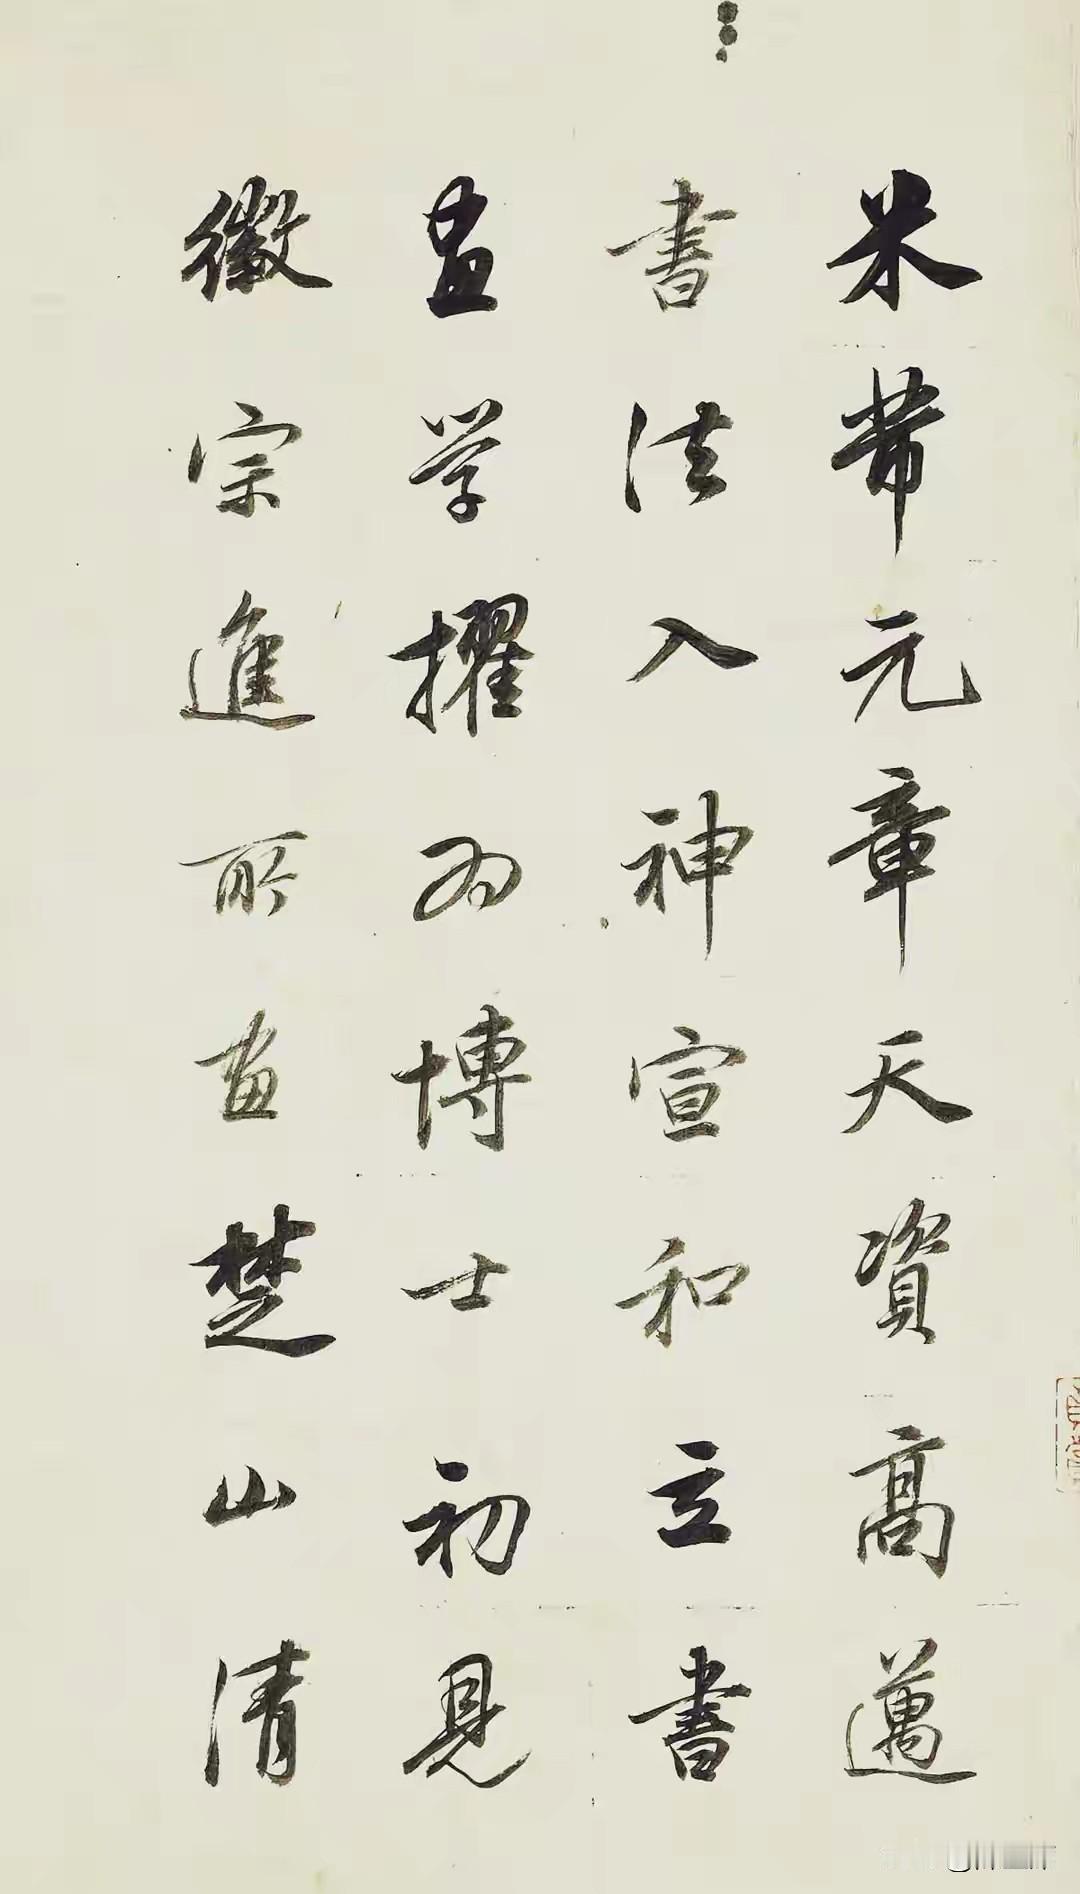 米芾元章天資高邁
書法入神宣和立書
畫学擢为博士初見
徽宗進所畫楚山清